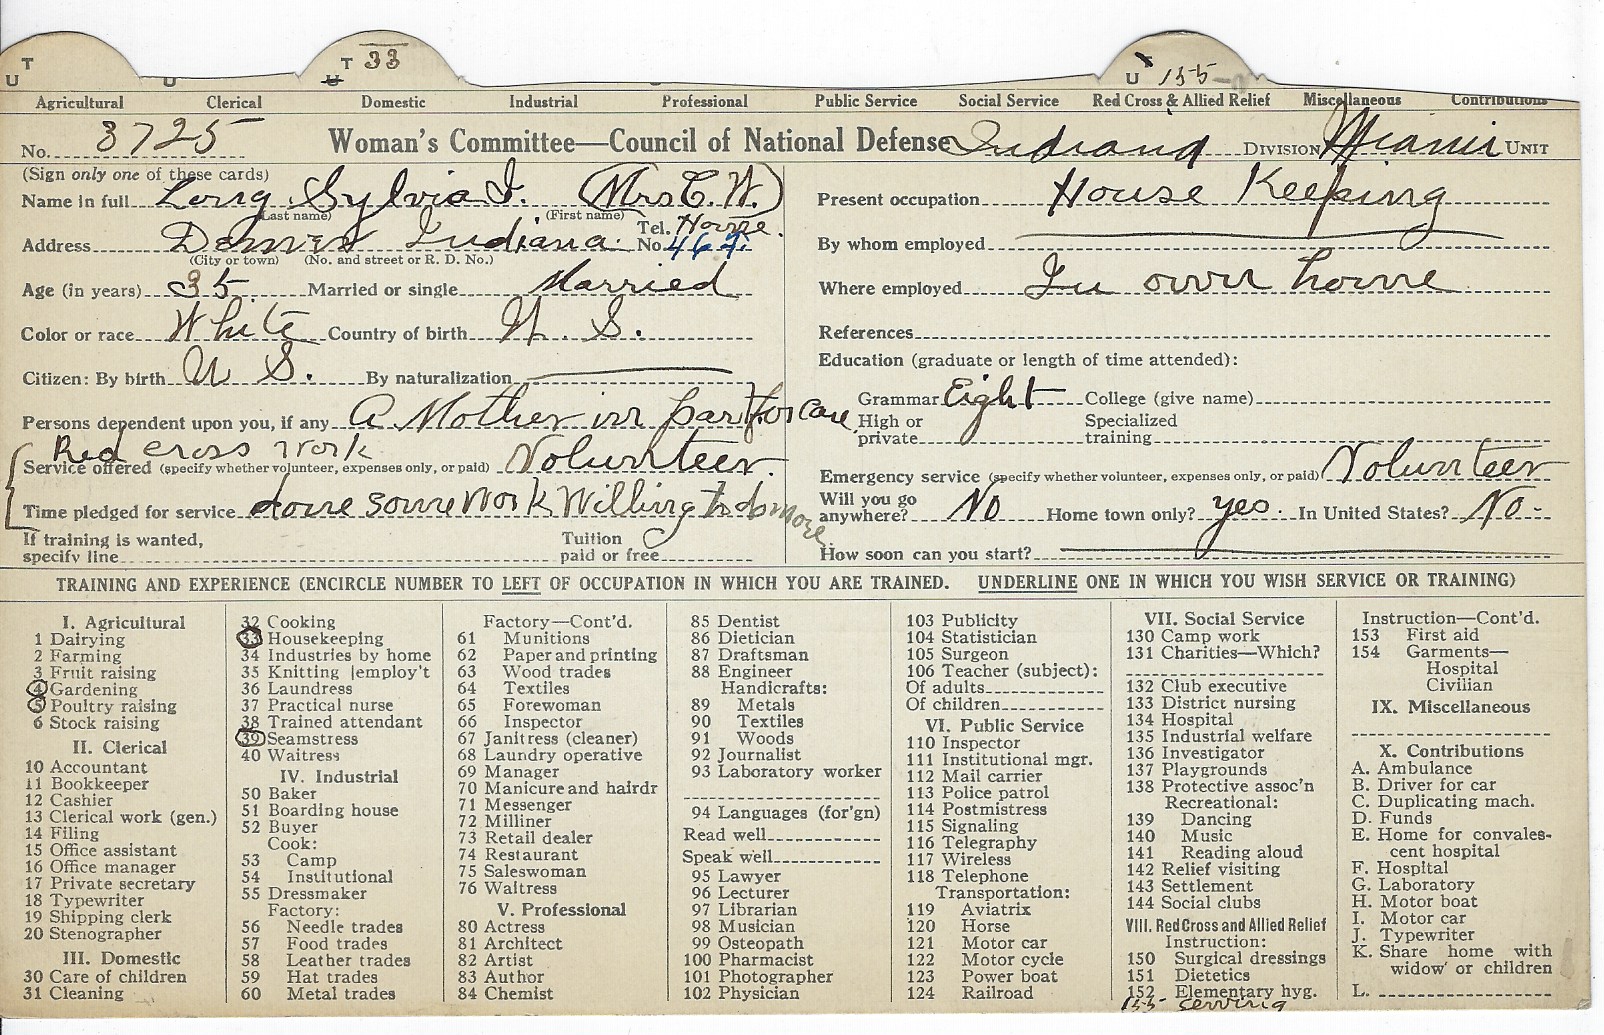 U T U U T 33 U T 155
Agricultural Clerical Domestic Industrial Professional Public Service Social Service Red Cross & Allied Relief Miscellaneous Contributions
No. 3725 Woman's Committee—Council of National Defense Indiana DIVISION Miami UNIT
(Sign only one of these cards)
Name in full Long Sylvia I. (Mrs C. W.)
(Last name) (First name)
Address Denver Indiana. Tel. No. Home. 467.
(City or town) (No. and street or R. D. No.)
Age (in years) 35. Married or single Married
Color or race White Country of birth U. S.
Citizen: By birth U S. By naturalization
Persons dependent upon you, if any A Mother in part for care
Red cross work
Service offered (specify whether volunteer, expenses only, or paid) Volunteer.
Time pledged for service done some work Willing to do more
If training is wanted, specify line Tuition paid or free
Present occupation House Keeping
By whom employed
Where employed In own home
References
Education (graduate or length of time attended):
Grammar Eight College (give name)
High or private Specialized training
Emergency service (specify whether volunteer, expenses only, or paid) Volunteer
Will you go anywhere? No Home town only? yes. In United States? No-
How soon can you start?
TRAINING AND EXPERIENCE (ENCIRCLE NUMBER TO LEFT OF OCCUPATION IN WHICH YOU ARE TRAINED. UNDERLINE ONE IN WHICH YOU WISH SERVICE OR TRAINING)
I. Agricultural
1 Dairying
2 Farming
3 Fruit raising
4 Gardening
5 Poultry raising
6 Stock raising
II. Clerical
10 Accountant
11 Bookkeeper
12 Cashier
13 Clerical work (gen.)
14 Filing
15 Office assistant
16 Office manager
17 Private secretary
18 Typewriter
19 Shipping clerk
20 Stenographer
III. Domestic
30 Care of children
31 Cleaning
32 Cooking
33 Housekeeping
34 Industries by home
35 Knitting [employ't
36 Laundress
37 Practical nurse
38 Trained attendant
39 Seamstress
40 Waitress
IV. Industrial
50 Baker
51 Boarding house
52 Buyer
Cook:
53 Camp
54 Institutional
55 Dressmaker
Factory:
56 Needle trades
57 Food trades
58 Leather trades
59 Hat trades
60 Metal trades
Factory—Cont'd.
61 Munitions
62 Paper and printing
63 Wood trades
64 Textiles
65 Forewoman
66 Inspector
67 Janitress (cleaner)
68 Laundry operative
69 Manager
70 Manicure and hairdr
71 Messenger
72 Milliner
73 Retail dealer
74 Restaurant
75 Saleswoman
76 Waitress
V. Professional
80 Actress
81 Architect
82 Artist
83 Author
84 Chemist
85 Dentist
86 Dietician
87 Draftsman
88 Engineer
Handicrafts:
89 Metals
90 Textiles
91 Woods
92 Journalist
93 Laboratory worker
94 Languages (for'gn)
Read well
Speak well
95 Lawyer
96 Lecturer
97 Librarian
98 Musician
99 Osteopath
100 Pharmacist
101 Photographer
102 Physician
103 Publicity
104 Statistician
105 Surgeon
106 Teacher (subject):
Of adults
Of children
VI. Public Service
110 Inspector
111 Institutional mgr.
112 Mail carrier
113 Police patrol
114 Postmistress
115 Signaling
116 Telegraphy
117 Wireless
118 Telephone
Transportation:
119 Aviatrix
120 Horse
121 Motor car
122 Motor cycle
123 Power boat
124 Railroad
VII. Social Service
130 Camp work
131 Charities—Which?
132 Club executive
133 District nursing
134 Hospital
135 Industrial welfare
136 Investigator
137 Playgrounds
138 Protective assoc'n
Recreational:
139 Dancing
140 Music
141 Reading aloud
142 Relief visiting
143 Settlement
144 Social clubs
VIII. Red Cross and Allied Relief
Instruction:
150 Surgical dressings
151 Dietetics
152 Elementary hyg.
155 serving
Instruction—Cont'd.
153 First aid
154 Garments—
Hospital
Civilian
IX. Miscellaneous
X. Contributions
A. Ambulance
B. Driver for car
C. Duplicating mach.
D. Funds
E. Home for convales-
cent hospital
F. Hospital
G. Laboratory
H. Motor boat
I. Motor car
J. Typewriter
K. Share home with
widow or children
L.